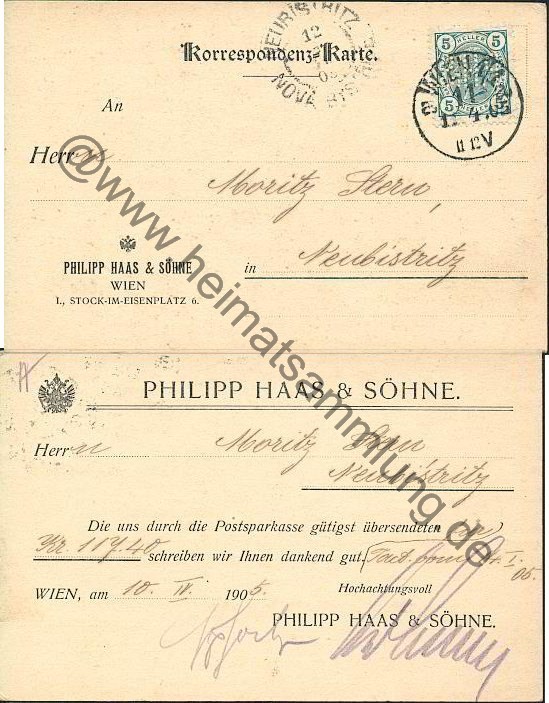 NEUBISTRITZ
12
NOVÁ BYSTŘICE
Korrespondenz-Karte.
5 HELLER 5
5 5
WIEN
11. 4. 05
II 12 V
An
Herrn
Moritz Stern,
PHILIPP HAAS & SÖHNE
WIEN
I., STOCK-IM-EISENPLATZ 6.
in Neubistritz
PHILIPP HAAS & SÖHNE.
Herrn Moritz Stern
Neubistritz
Die uns durch die Postsparkasse gütigst übersendeten
Kr. 117.40 schreiben wir Ihnen dankend gut.
05.
WIEN, am 10. IV. 1905. Hochachtungsvoll
PHILIPP HAAS & SÖHNE.
@www.heimatsammlung.de